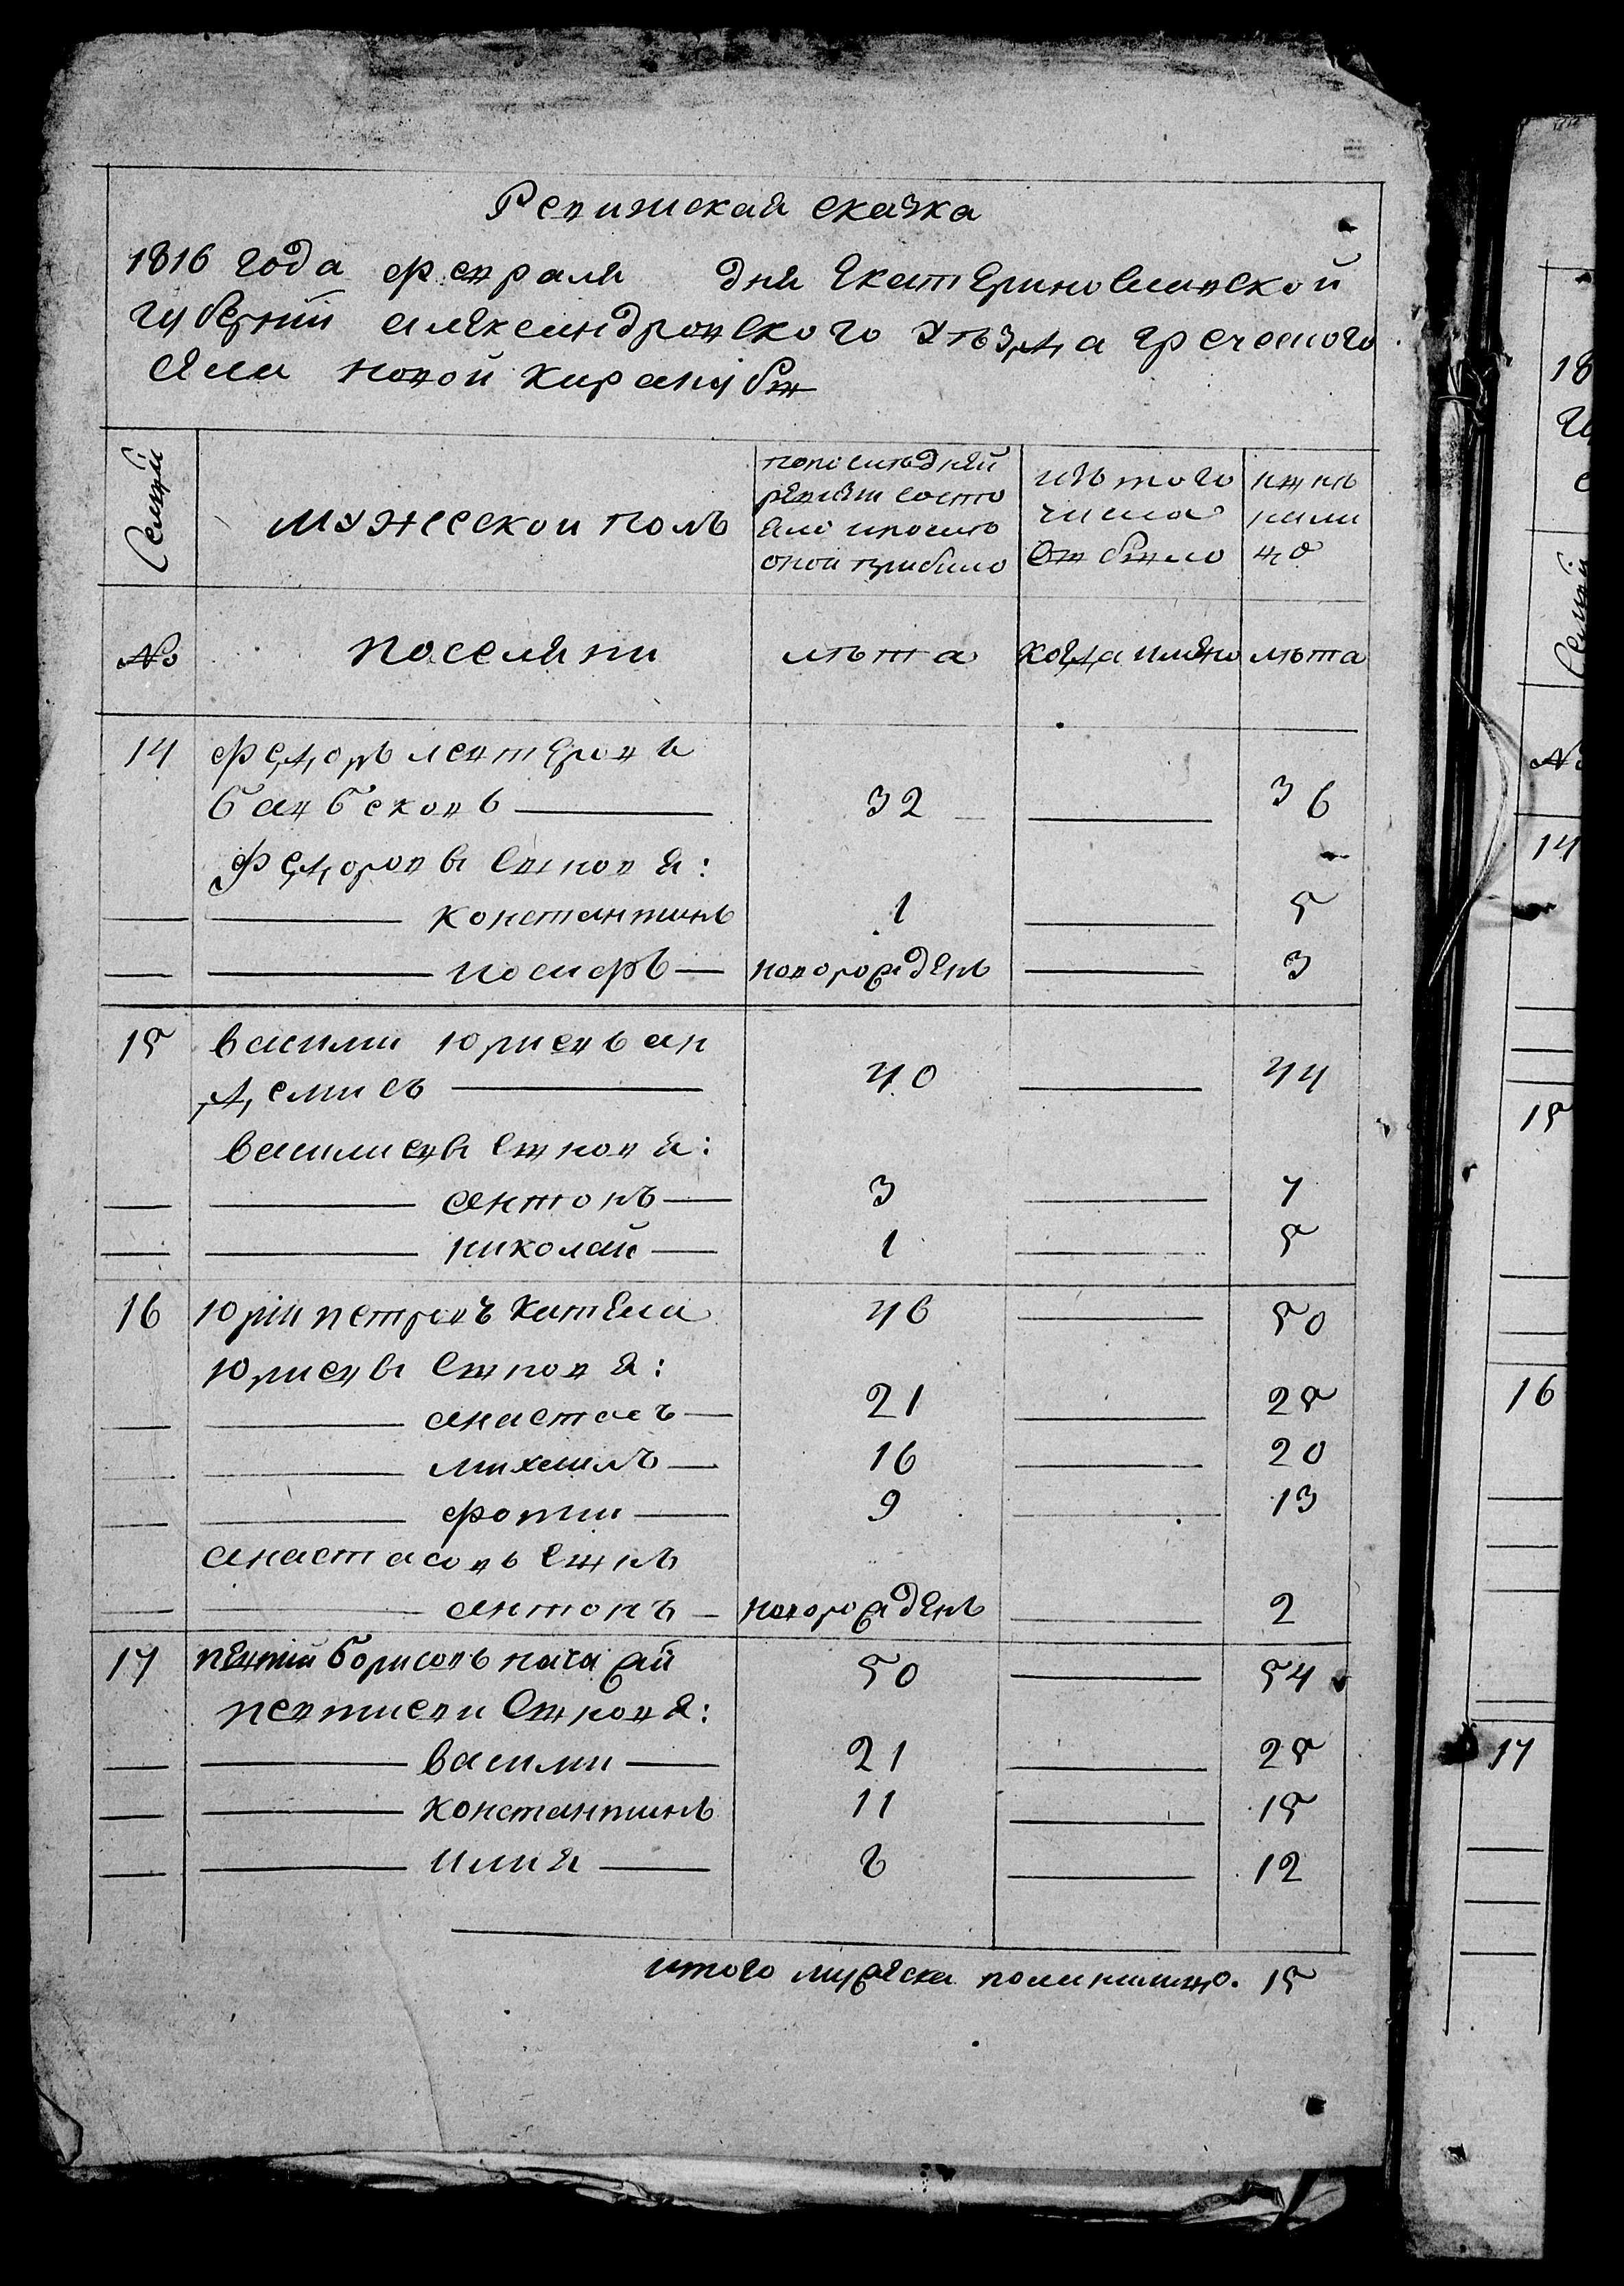 Ревижская сказка
1816 года февраля дня Екатериновславской
губернии александровского уѣзда греческого
села новой каракубы
Семьи
мужеской полъ
попоследней
ревизии состо
яло ипосле
оной прибыло
изъ того
числа
выбыло
нынѣ
нали
цо
№
поселяни
лѣта
когда имяно
лѣта
14 федоръ левтеровъ
бавбековъ 32 36
федоровы сыновя:
константинъ 1 5
иосифъ новорожденъ 3
15 василии юриевъ ан
демисъ 40 44
василиевы сыновя:
антонъ 3 7
николай 1 5
16 юрии петровъ кателла 46 50
юриевы сыновя:
анастасъ 21 25
михаилъ 16 20
фотии 9 13
анастасовъ сынъ
антонъ новорожденъ 2
17 пентий борисовъ начажай 50 54
пентиеви сыновя:
василии 21 25
константинъ 11 15
илия 8 12
итого мужеска пола налицо. 15
18
14
15
16
17